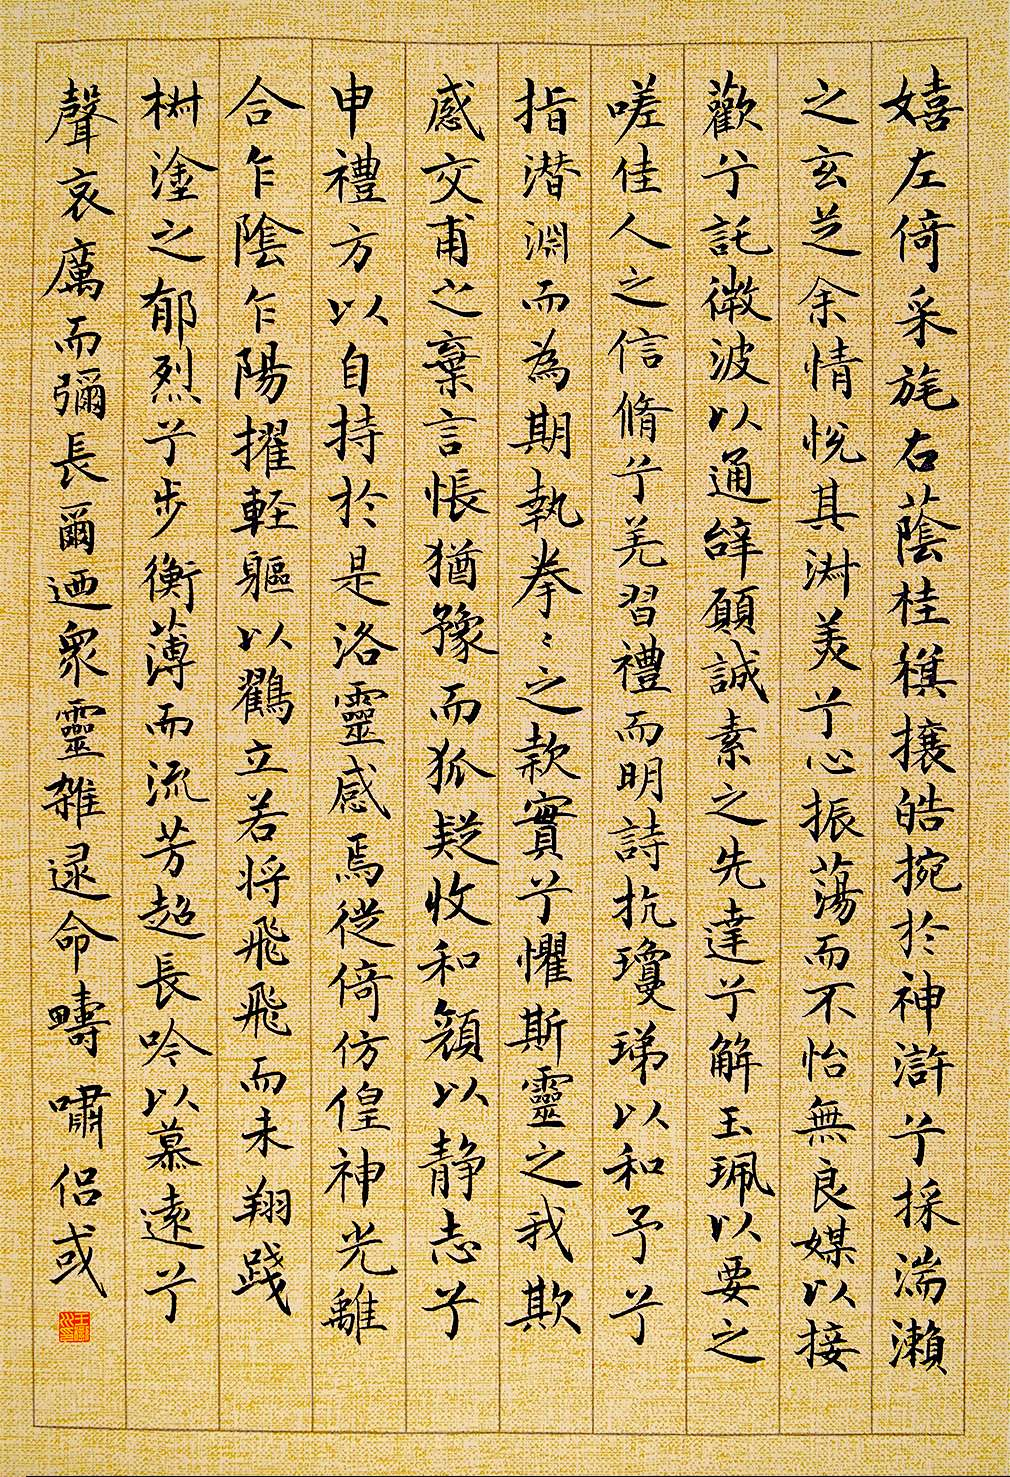 嬉左倚采旄右蔭桂旗攘皓捥於神滸兮採湍瀨
之玄芝余情悅其淑美兮心振蕩而不怡無良媒以接
歡兮託微波以通辝願誠素之先達兮解玉珮以要之
嗟佳人之信脩兮羌習禮而明詩抗瓊珶以和予兮
指潛淵而為期執拳〻之款實兮懼斯靈之我欺
感交甫之棄言悵猶豫而狐疑收和顏以靜志兮
申禮方以自持於是洛靈感焉從倚仿偟神光離
合乍陰乍陽擢輕軀以鶴立若将飛飛而未翔踐
椒塗之郁烈兮步衡薄而流芳超長吟以慕遠兮
聲哀厲而彌長爾迺衆靈雜遝命疇嘯侶或